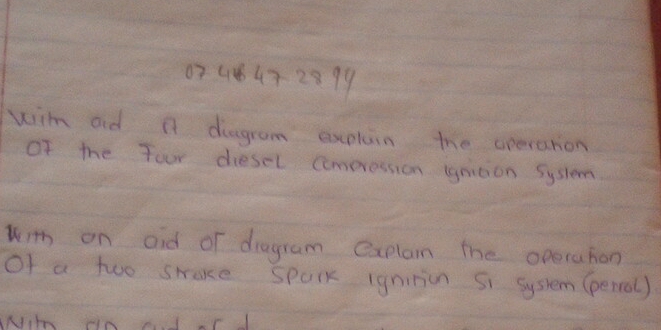 07 4647 2894
With aid a diagram explain the operation
Of the Four diesel Compression ignition System
With an aid of diagram Explain the operation
Of a two Stroke Spark ignition SI System (petrol)
With an aid of d